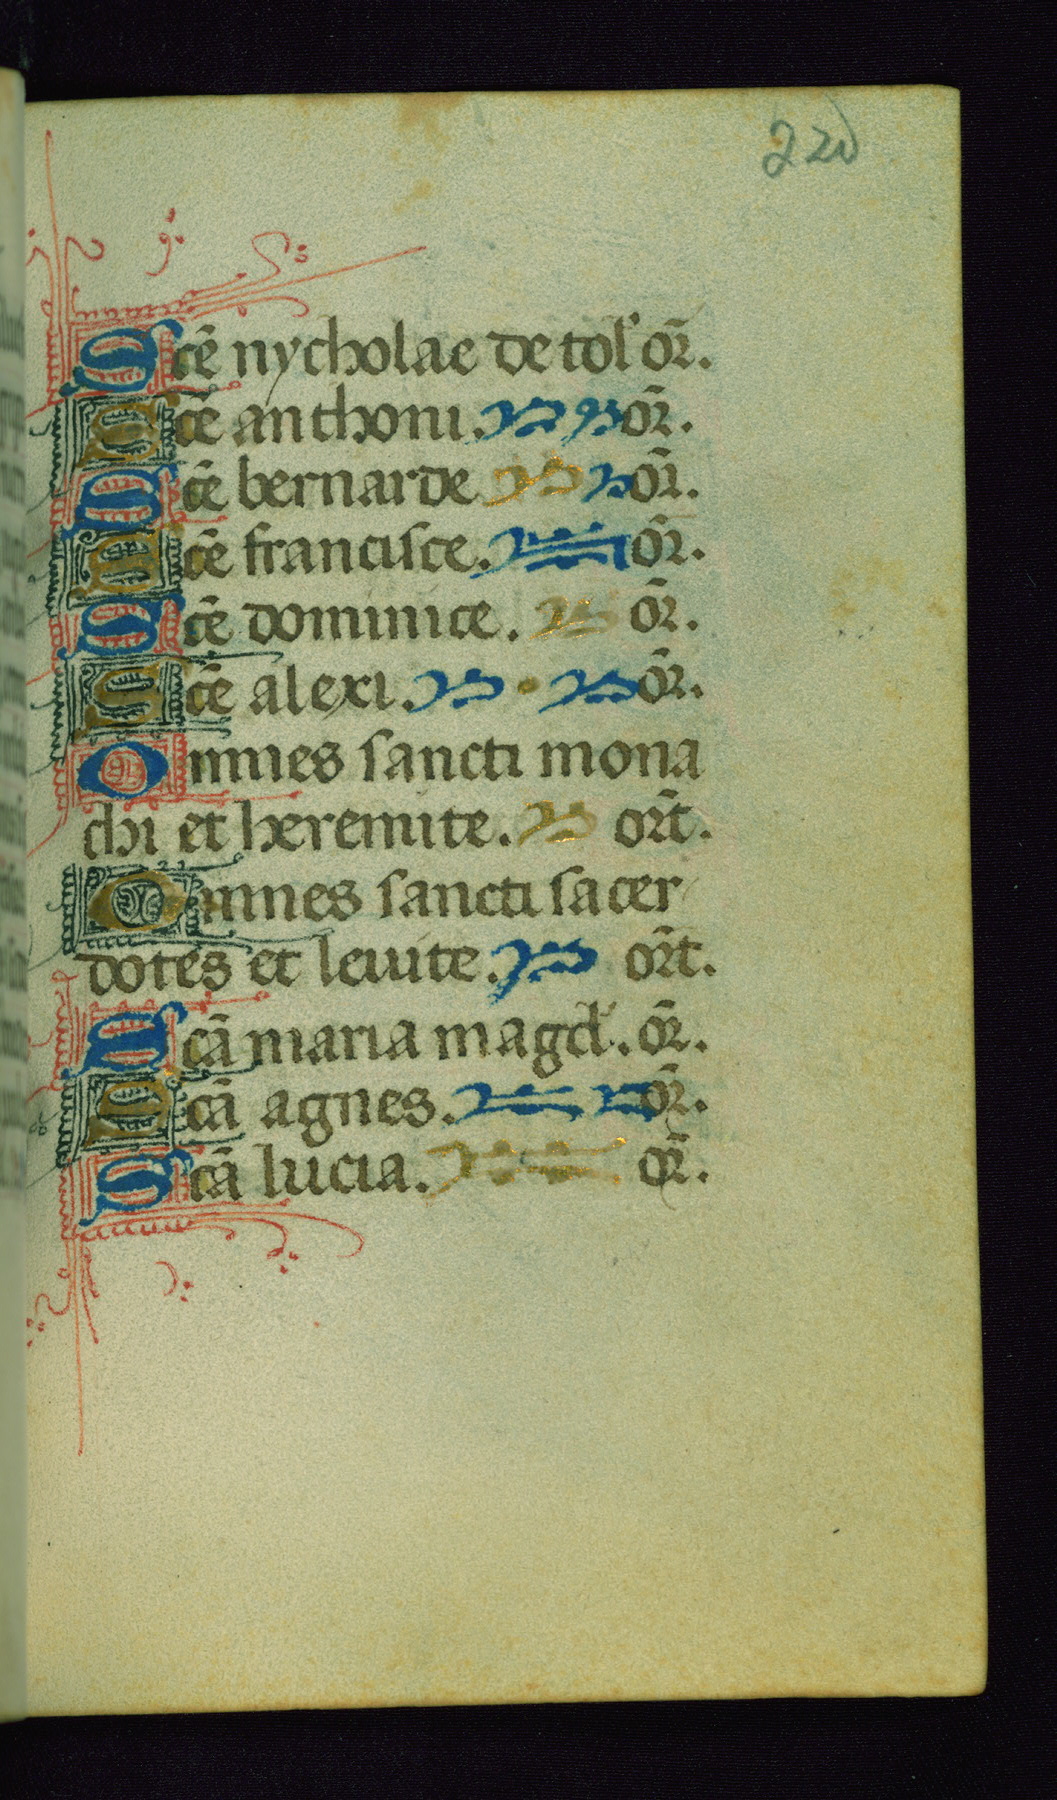 220
Scē nycholae de tol' or̄.
Scē anthoni. or̄.
Scē bernarde or̄.
Scē francisce. or̄.
Scē dominice. or̄.
Scē alexi. or̄.
Omnes sancti mona
chi et heremite. or̄t.
Omnes sancti sacer
dotes et leuite. or̄t.
Scā maria magd'. or̄.
Scā agnes. or̄.
Scā lucia. or̄.